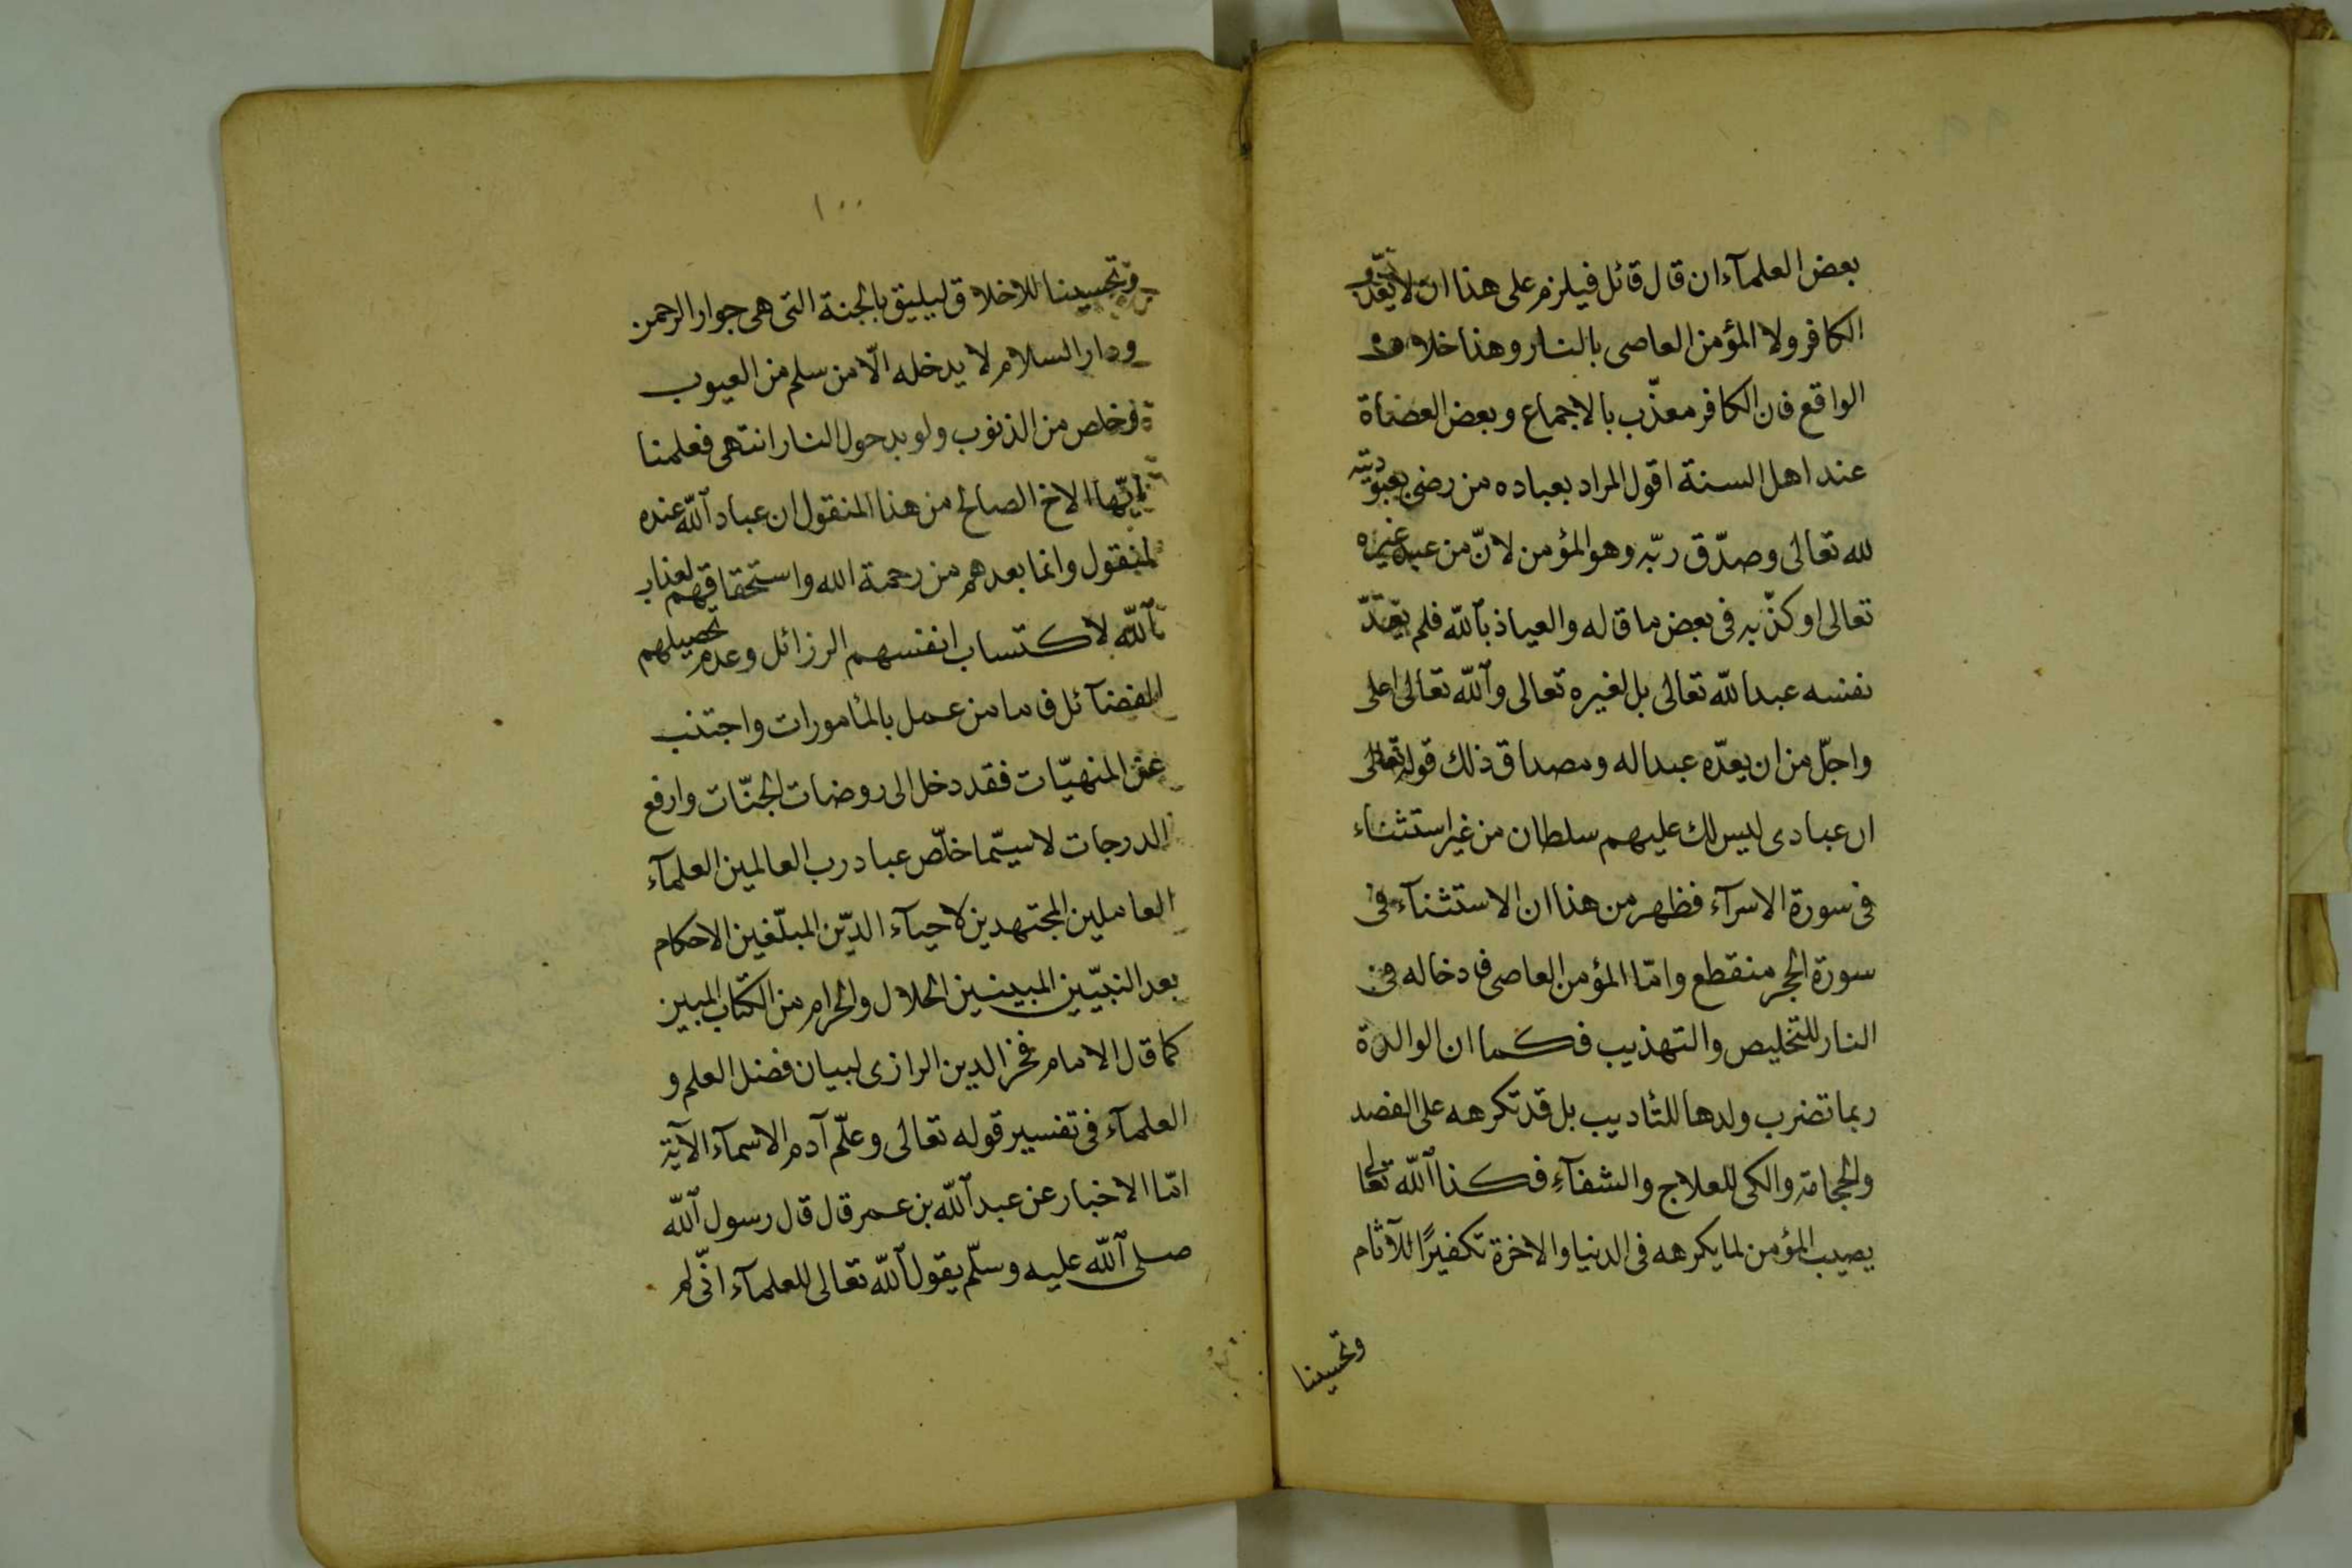 بعض العلمآء ان قال قائل فيلزم على هذا ان لا يعذّب
الكافر ولا المؤمن العاصى بالنار وهذا خلاف
الواقع فان الكافر معذّب بالاجماع وبعض العضاة
عند اهل السنة اقول المراد بعباده من رضى بعبوديته
لله تعالى وصدّق ربّه وهو المؤمن لانّ من عبد غيره
تعالى او كذّبه فى بعض ما قاله والعياذ بالله فلم يعدّ
نفسه عبدا لله تعالى بل لغيره تعالى والله تعالى اعلى
واجلّ من ان يعدّه عبدا له ومصداق ذلك قوله تعالى
ان عبادى ليس لك عليهم سلطان من غير استثناء
فى سورة الاسرآء فظهر من هذا ان الاستثنآء فى
سورة الحجر منقطع وامّا المؤمن العاصى فادخاله فى
النار للتخليص والتهذيب فكما ان الوالدة
ربما تضرب ولدها للتاديب بل قد تكرهه على الفصد
والحجامة والكى للعلاج والشفآء فكذا الله تعالى
يصيب المؤمن لما يكرهه فى الدنيا والاخرة تكفيرًا للآثام
وتحسينا
١٠٠
وتحسينا للاخلاق ليليق بالجنة التى هى جوار الرحمن
ودار السلام لا يدخله الّا من سلم من العيوب
وخلص من الذنوب ولو بدحول النار انتهى فعلمنا
ايّها الاخ الصالح من هذا المنقول ان عباد الله عنده
لمنقول وانما بعدهم من رحمة الله واستحقاقهم لعذاب
الله لاكتساب انفسهم الرزائل وعدم تحصيلهم
الفضآئل فاما من عمل بالمأمورات واجتنب
عن المنهيّات فقد دخل الى روضات الجنّات وارفع
الدرجات لاسيّما خلّص عباد رب العالمين العلمآء
العاملين المجتهدين لاحيآء الديّن المبلّغين الاحكام
بعد النبيّين المبينين الحلال والحرام من الكتاب المبين
كما قال الامام فخر الدين الرازى لبيان فضل العلم و
العلمآء فى تفسير قوله تعالى وعلّم آدم الاسمآء الآية
امّا الاخبار عن عبد الله بن عمر قال قال رسول الله
صلى الله عليه وسلّم يقول الله تعالى للعلمآء انّى لم